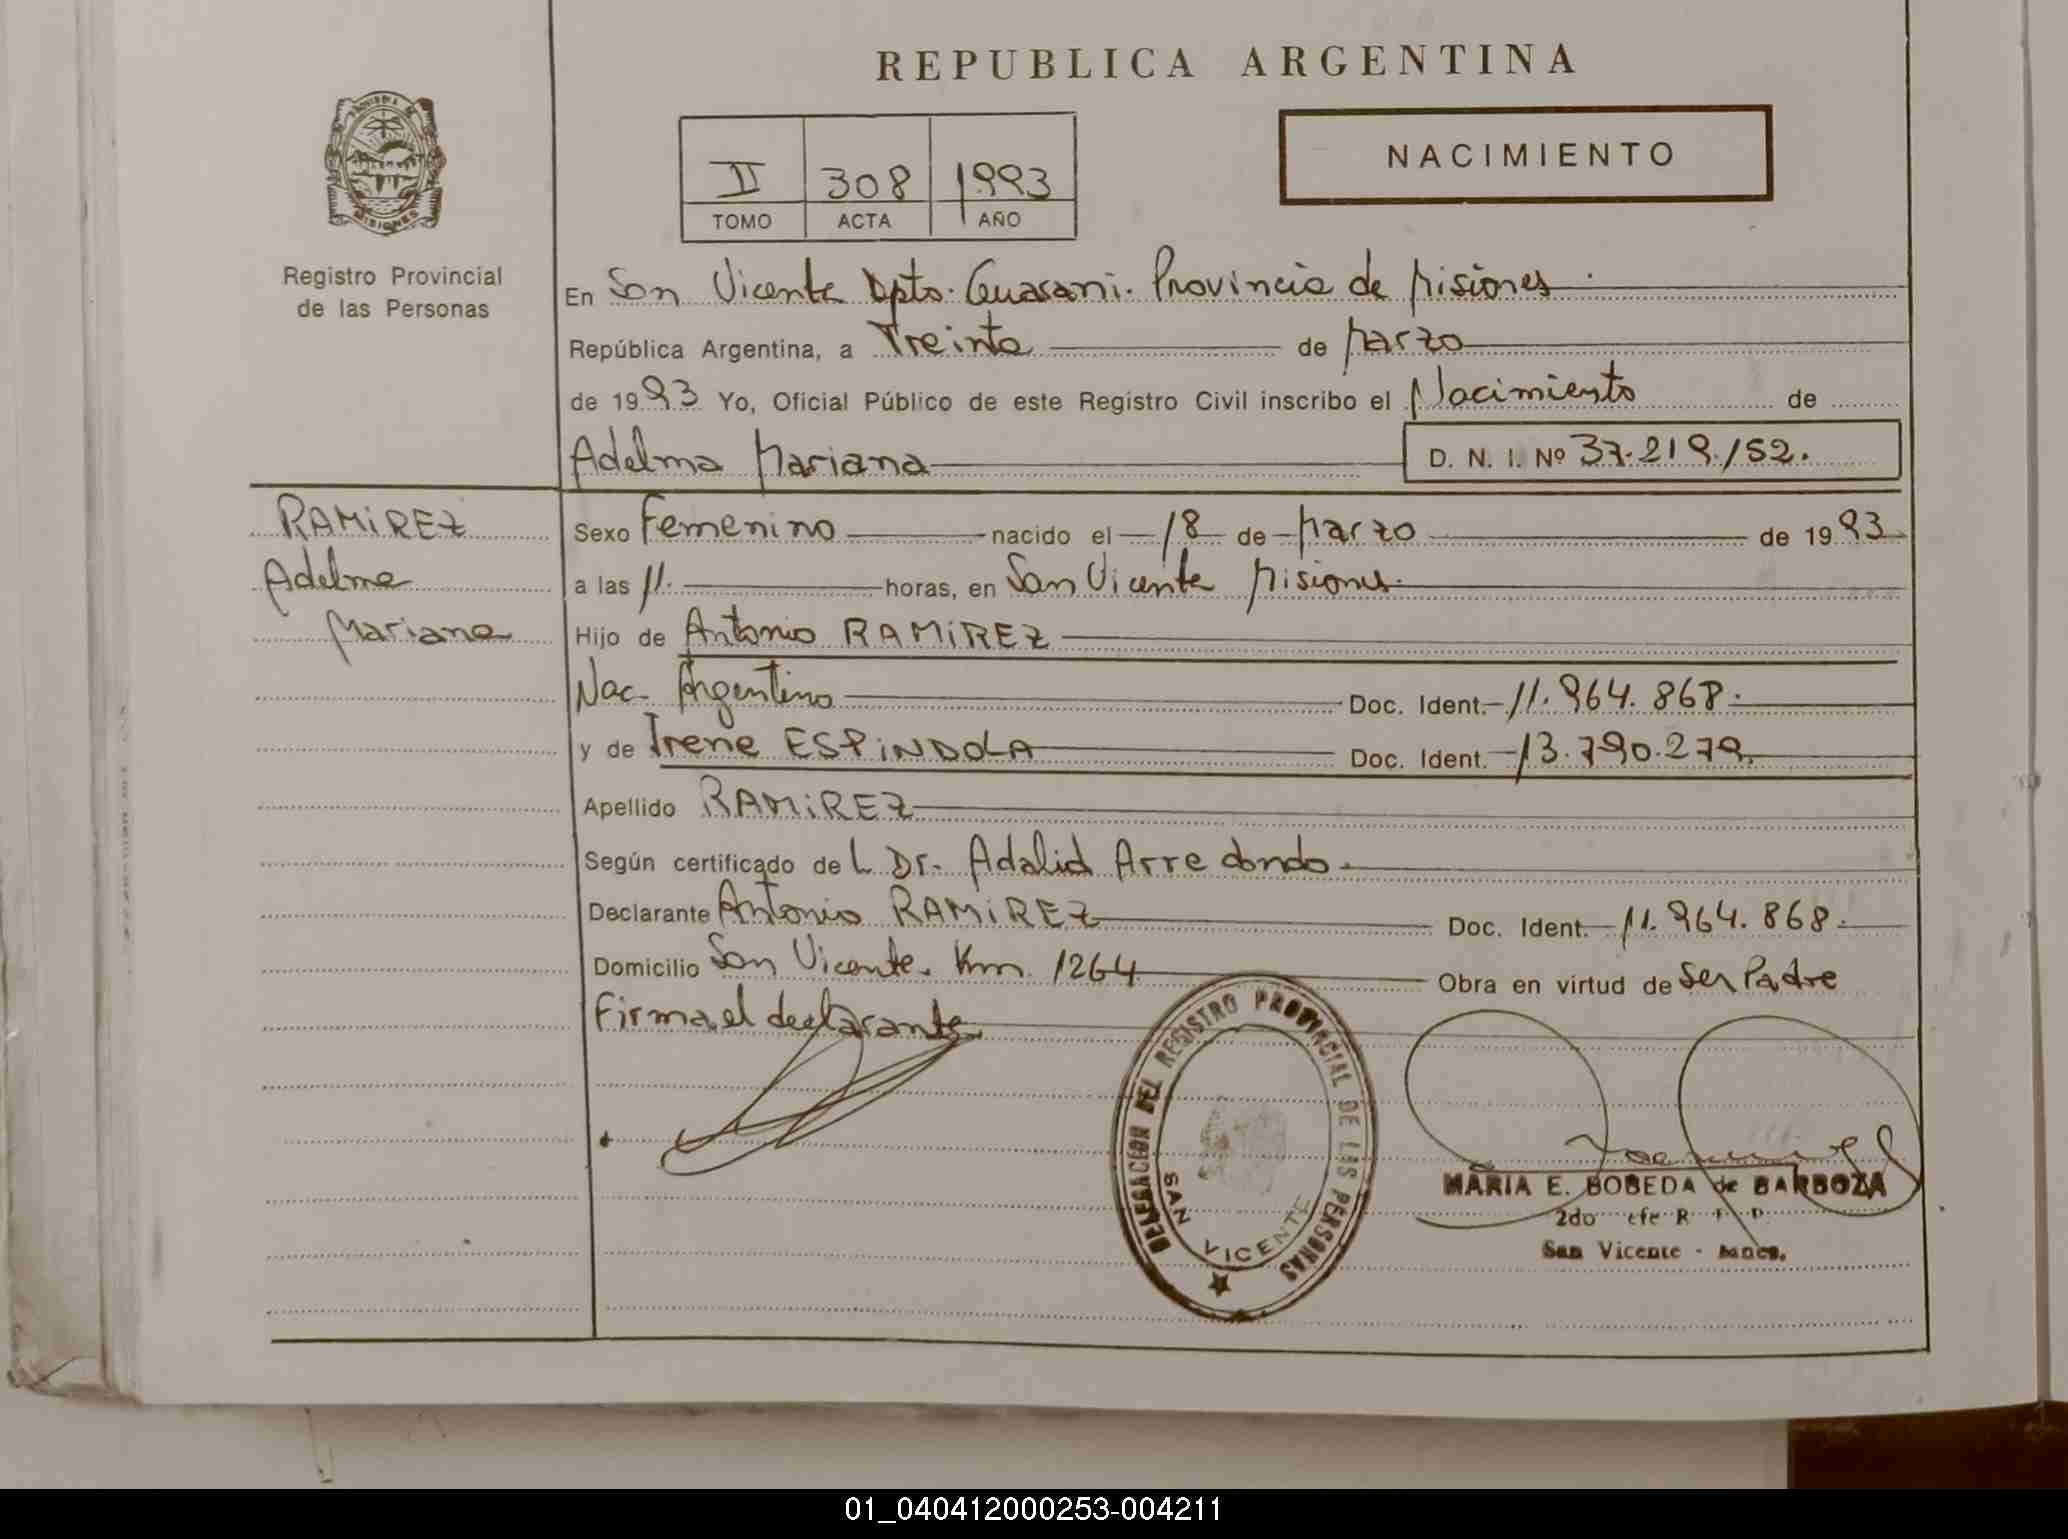 REPUBLICA ARGENTINA
NACIMIENTO
II 308 1993
TOMO ACTA AÑO
PROVINCIA DE
MISIONES
Registro Provincial
de las Personas
En San Vicente Dpto. Guarani. Provincia de Misiones
República Argentina, a Treinta de Marzo
de 1993 Yo, Oficial Público de este Registro Civil inscribo el Nacimiento de
Adelma Mariana
D. N. I. Nº 37.219.152.
RAMIREZ
Adelma
Mariana
Sexo Femenino nacido el 18 de Marzo de 1993
a las 11. horas, en San Vicente Misiones.
Hijo de Antonio RAMIREZ
Nac. Argentino Doc. Ident. 11.964.868.
y de Irene ESPINDOLA Doc. Ident. 13.790.279.
Apellido RAMIREZ
Según certificado de L Dr. Adalid Arredondo.
Declarante Antonio RAMIREZ Doc. Ident. 11.964.868.
Domicilio San Vicente. Km. 1264 Obra en virtud de Ser Padre
Firma el declarante
DELEGACION DEL REGISTRO PROVINCIAL DE LAS PERSONAS
SAN VICENTE
MARIA E. BOBEDA de BARBOZA
2do efe R P
San Vicente - Mnes.
01_040412000253-004211